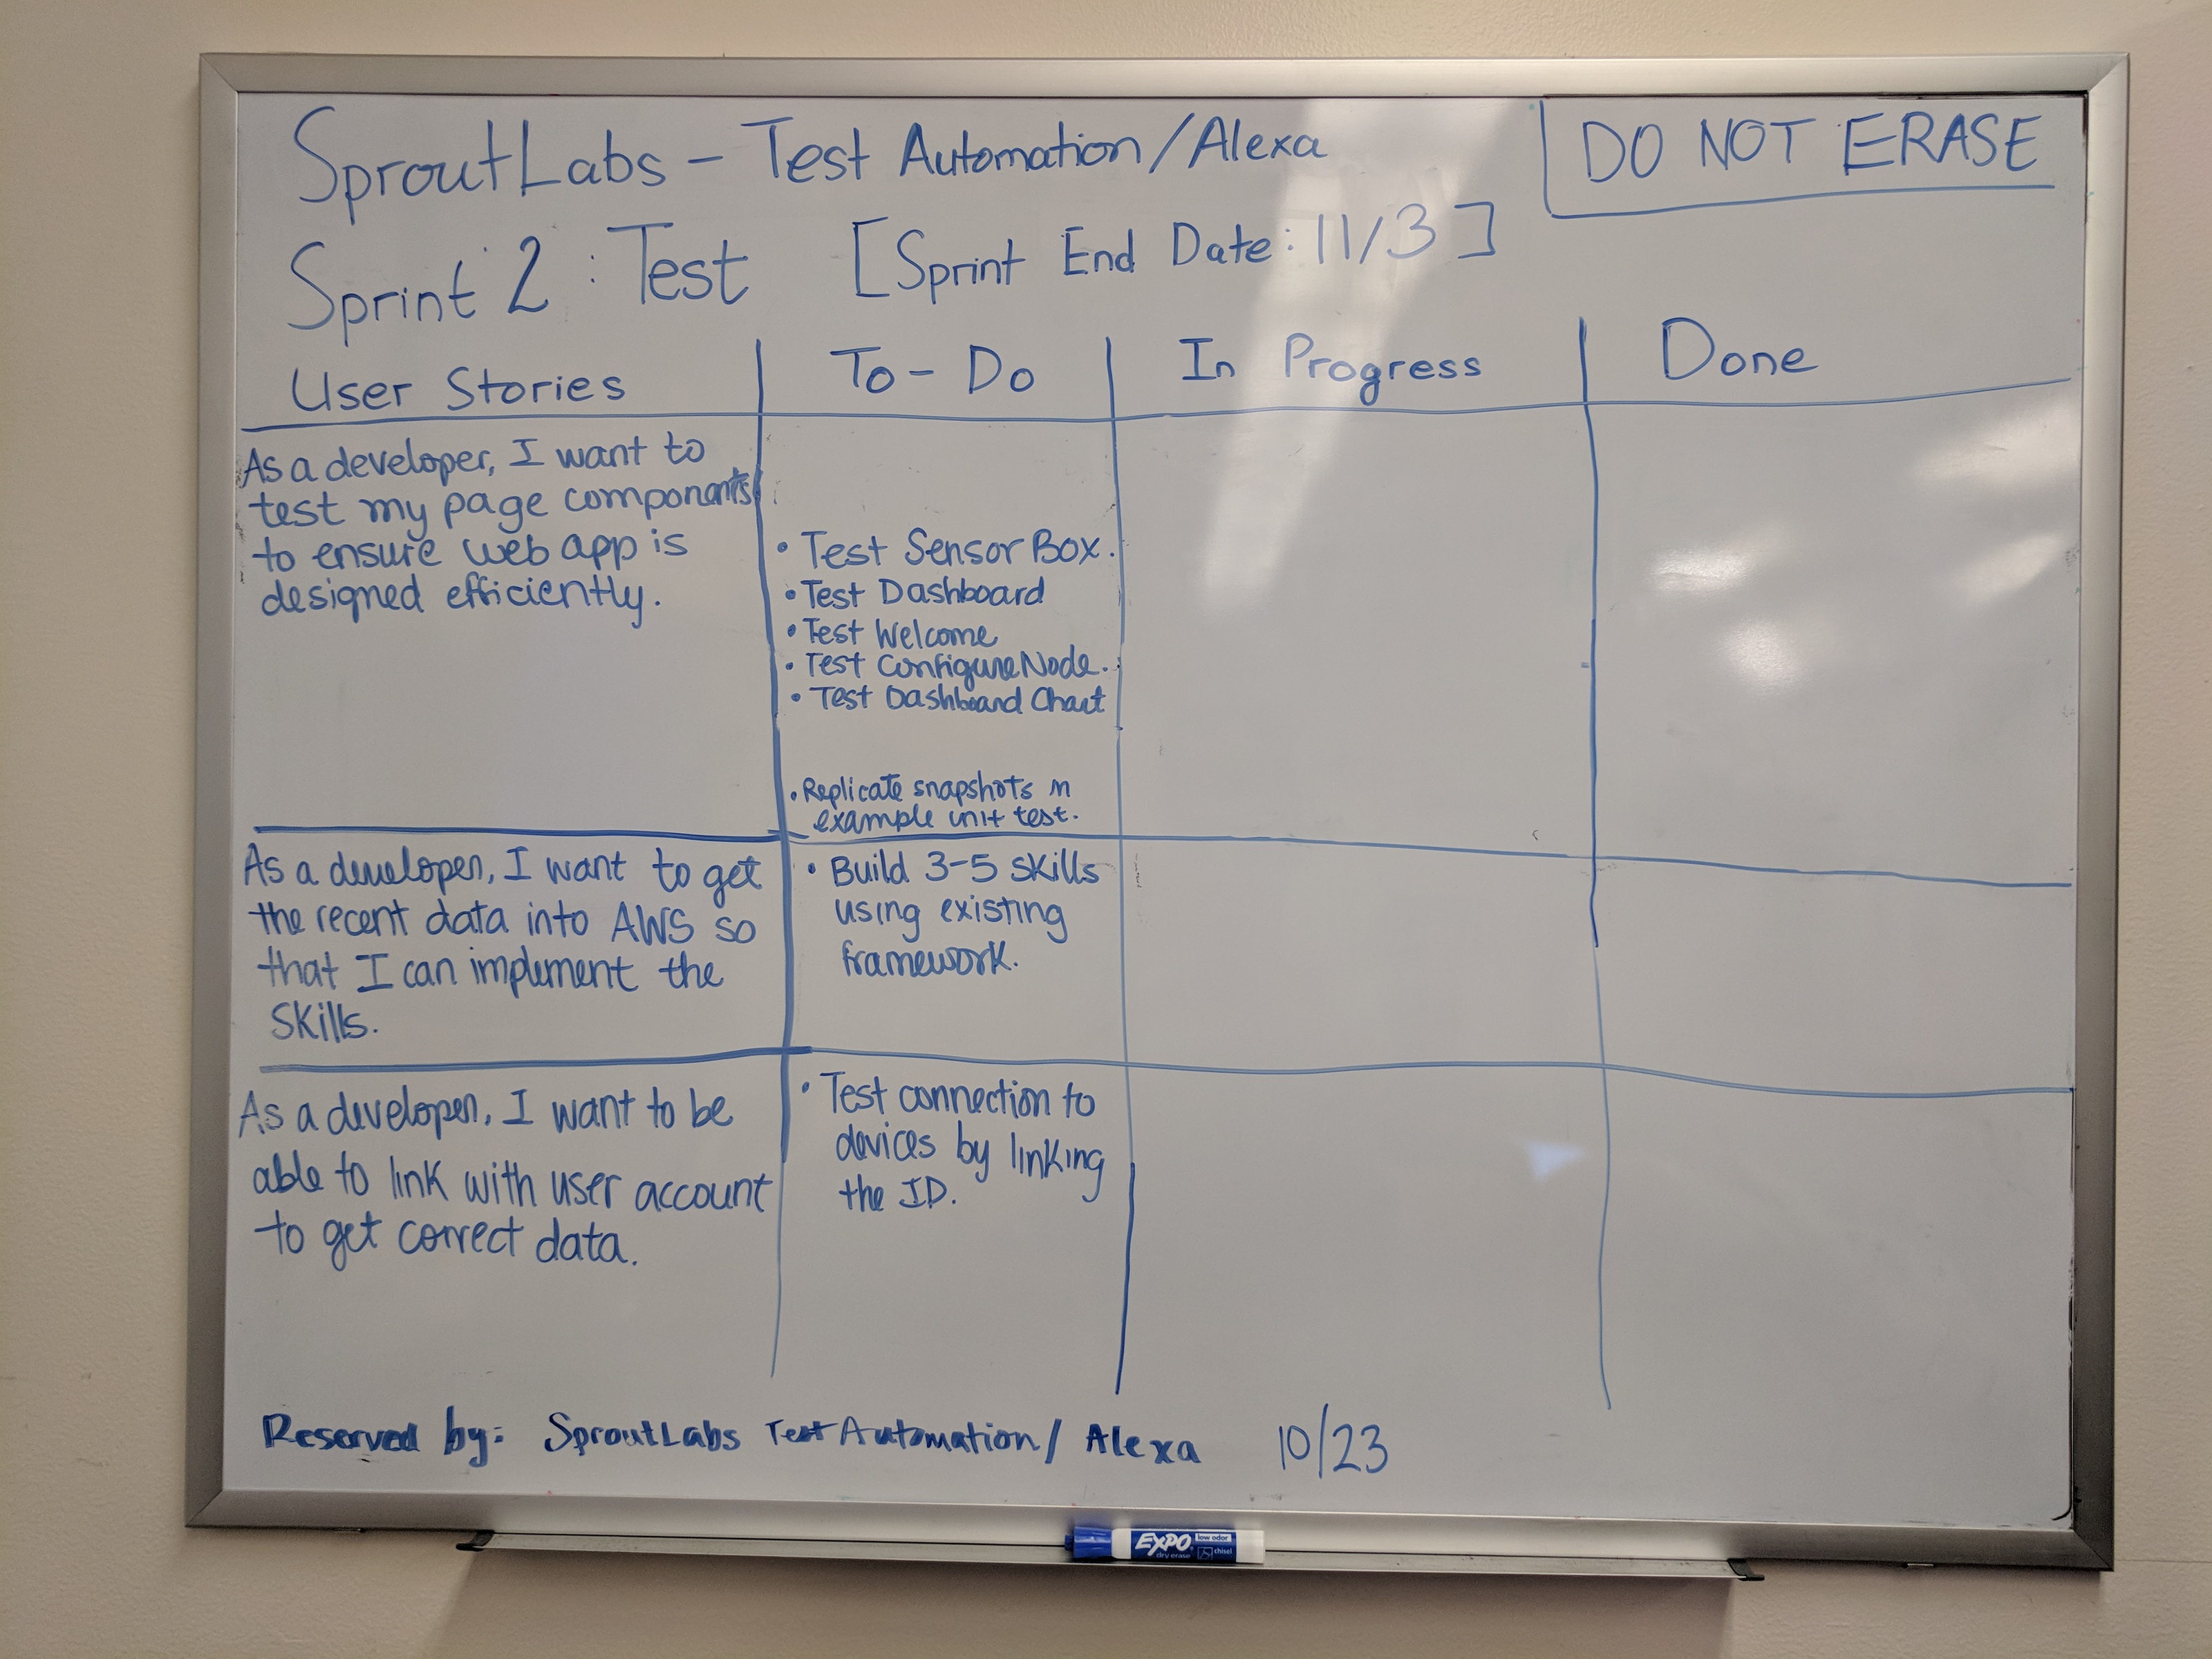 SproutLabs - Test Automation/Alexa
DO NOT ERASE
Sprint 2 : Test [Sprint End Date: 11/3]
User Stories
To-Do
In Progress
Done
As a developer, I want to
test my page components
to ensure web app is
designed efficiently.
• Test Sensor Box.
• Test Dashboard
• Test Welcome
• Test ConfigureNode.
• Test Dashboard Chart
• Replicate snapshots in
example unit test.
As a developer, I want to get
the recent data into AWS so
that I can implement the
skills.
• Build 3-5 skills
using existing
framework.
As a developer, I want to be
able to link with user account
to get correct data.
• Test connection to
devices by linking
the ID.
Reserved by: SproutLabs Test Automation/ Alexa 10/23
EXPO
low odor
dry erase
chisel